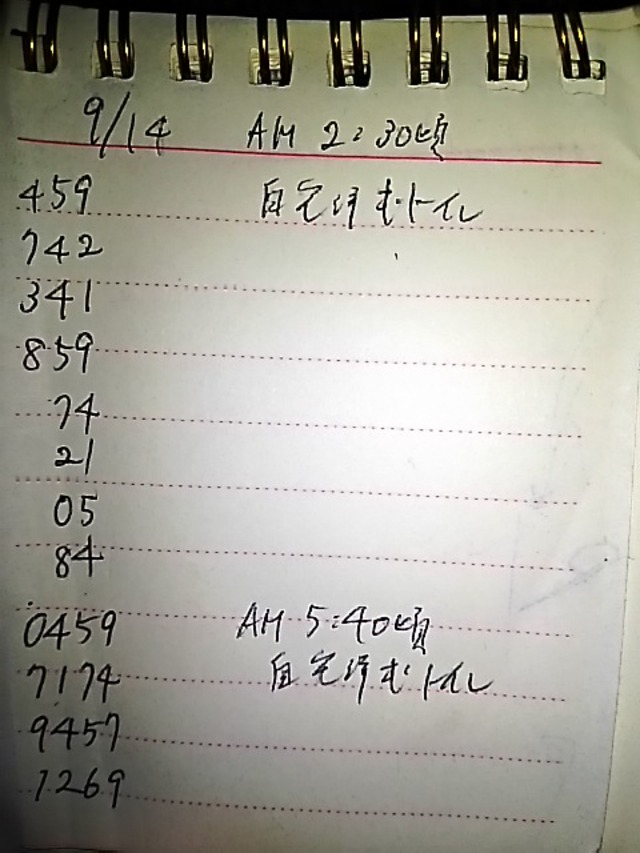 9/14 AM 2:30頃
459 自宅 トイレ
742
341
859
74
21
05
84
0459 AM 5:40頃
7174 自宅 トイレ
9457
1269